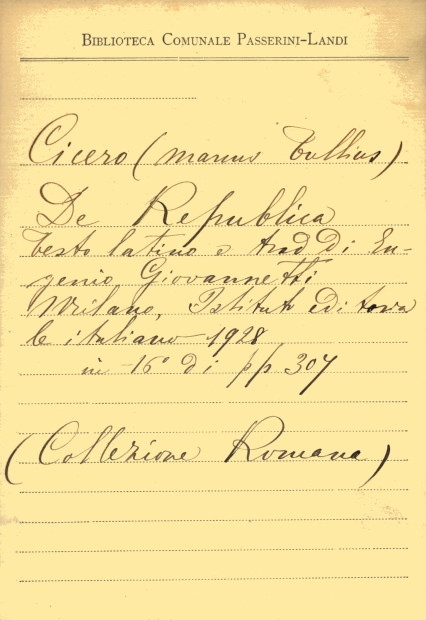 BIBLIOTECA COMUNALE PASSERINI-LANDI
Cicero (Marcus Tullius)
De Republica
Testo latino e trad di Eu-
genio Giovannetti
Milano, Istituto editoria
le italiano 1928
in -16° di pp 307
(Collezione Romana)